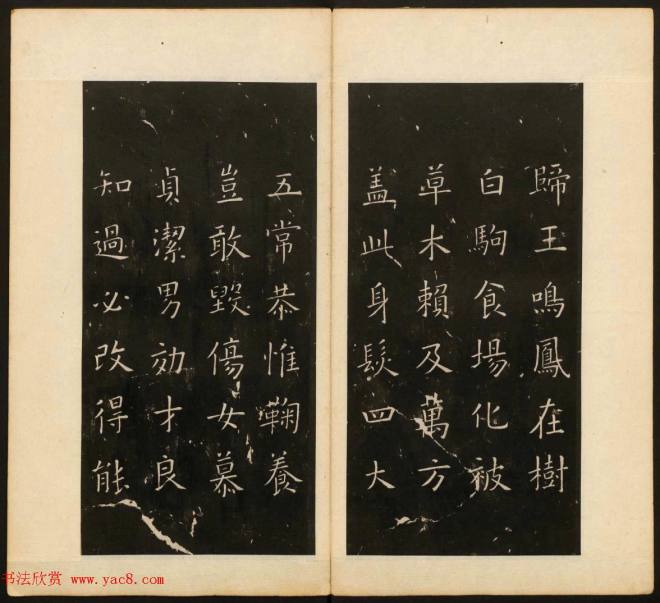 歸王鳴鳳在樹
白駒食場化被
草木賴及萬方
盖此身髮四大
五常恭惟鞠養
豈敢毀傷女慕
貞潔男効才良
知過必改得能
书法欣赏 www.yac8.com